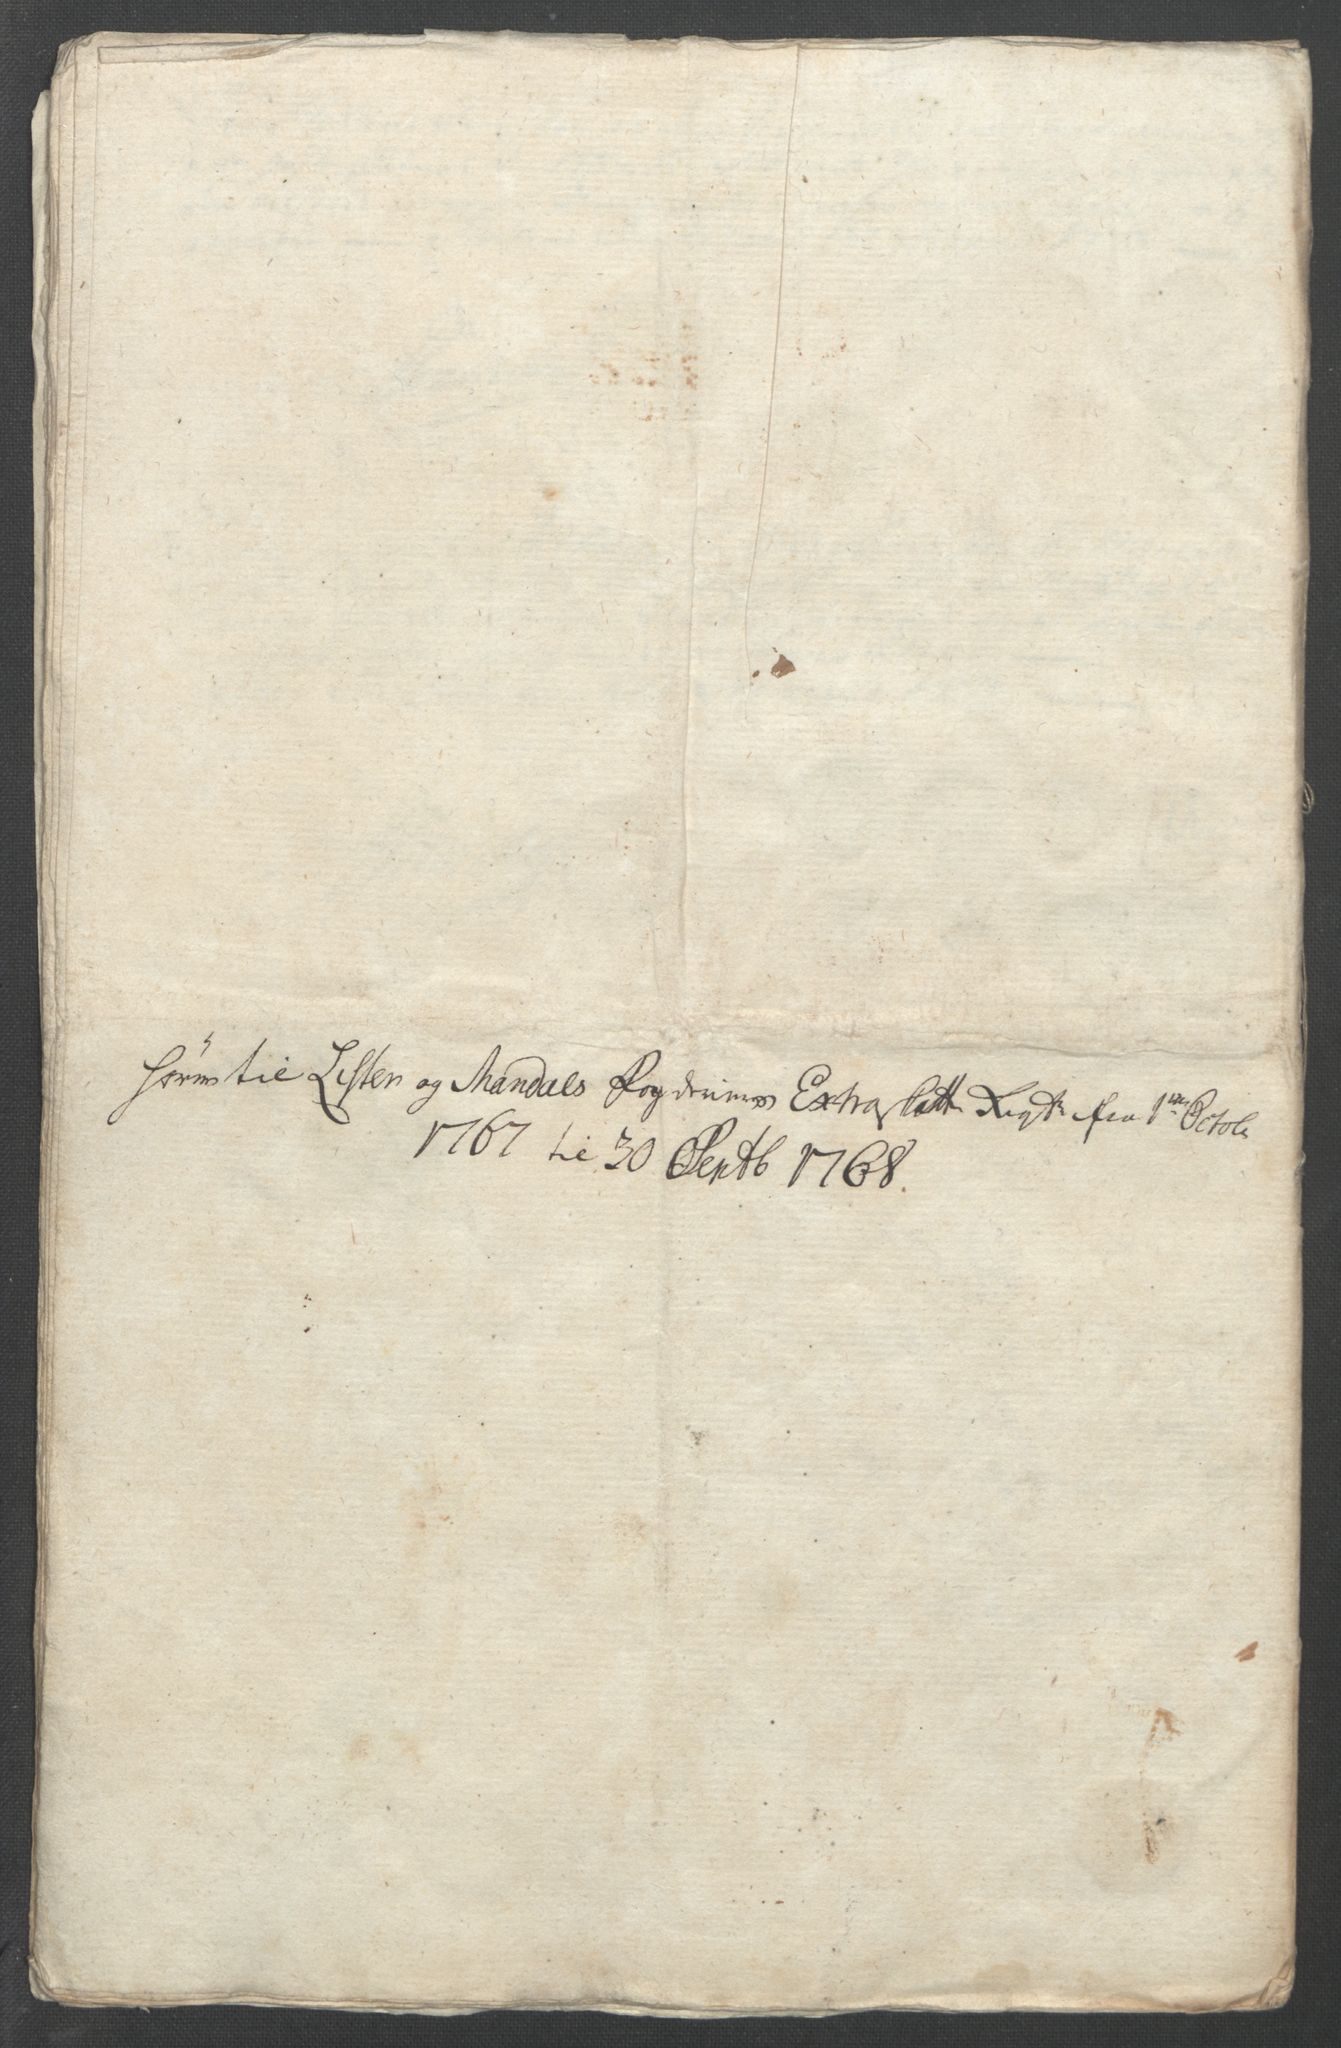 Hörer til Lister og Mandals Fogderiers Extraskatte Regnsk fra 1ste Octobr
1767 til 30 Septb 1768.